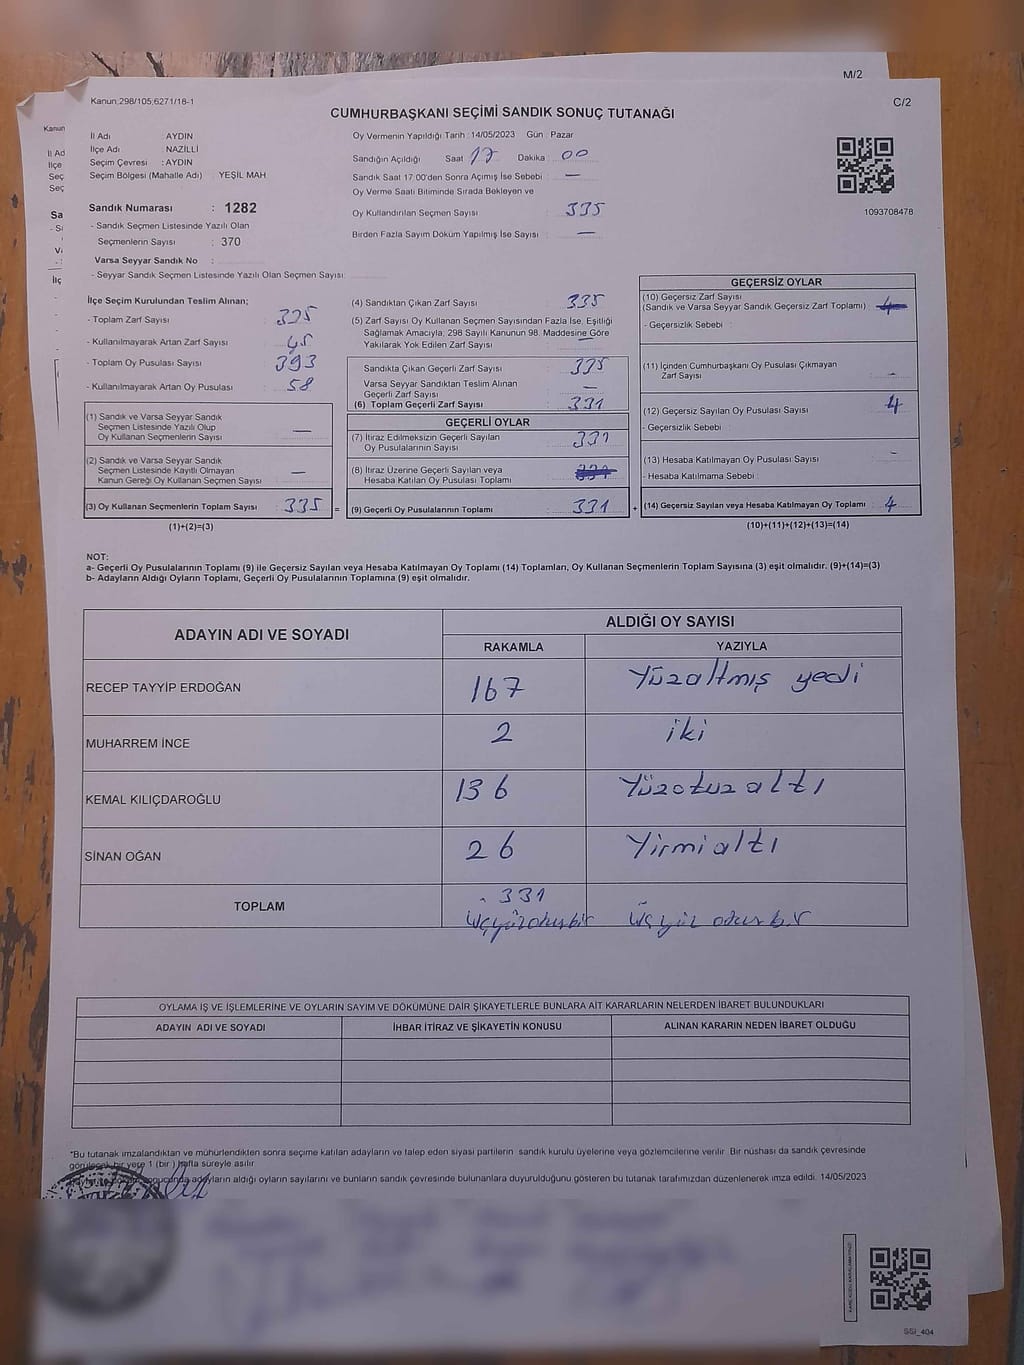 M/2
Kanun;298/105;6271/18-1
C/2
CUMHURBAŞKANI SEÇİMİ SANDIK SONUÇ TUTANAĞI
İl Adı : AYDIN
İlçe Adı : NAZİLLİ
Seçim Çevresi : AYDIN
Seçim Bölgesi (Mahalle Adı) : YEŞİL MAH
Sandık Numarası : 1282
- Sandık Seçmen Listesinde Yazılı Olan
Seçmenlerin Sayısı : 370
Varsa Seyyar Sandık No :
- Seyyar Sandık Seçmen Listesinde Yazılı Olan Seçmen Sayısı:
Oy Vermenin Yapıldığı Tarih : 14/05/2023 Gün : Pazar
Sandığın Açıldığı Saat 17 Dakika : 00
Sandık Saat 17:00'den Sonra Açımış İse Sebebi : —
Oy Verme Saati Bitiminde Sırada Bekleyen ve
Oy Kullandırılan Seçmen Sayısı : 335
Birden Fazla Sayım Döküm Yapılmış İse Sayısı : —
1093708478
İlçe Seçim Kurulundan Teslim Alınan;
- Toplam Zarf Sayısı :
- Kullanılmayarak Artan Zarf Sayısı : 45
- Toplam Oy Pusulası Sayısı : 393
- Kullanılmayarak Artan Oy Pusulası : 58
(1) Sandık ve Varsa Seyyar Sandık
Seçmen Listesinde Yazılı Olup
Oy Kullanan Seçmenlerin Sayısı : —
(2) Sandık ve Varsa Seyyar Sandık
Seçmen Listesinde Kayıtlı Olmayan
Kanun Gereği Oy Kullanan Seçmen Sayısı : —
(3) Oy Kullanan Seçmenlerin Toplam Sayısı : 335 =
(1)+(2)=(3)
(4) Sandıktan Çıkan Zarf Sayısı : 335
(5) Zarf Sayısı Oy Kullanan Seçmen Sayısından Fazla İse, Eşitliği
Sağlamak Amacıyla, 298 Sayılı Kanunun 98. Maddesine Göre
Yakılarak Yok Edilen Zarf Sayısı : —
Sandıkta Çıkan Geçerli Zarf Sayısı : 335
Varsa Seyyar Sandıktan Teslim Alınan
Geçerli Zarf Sayısı : —
(6) Toplam Geçerli Zarf Sayısı : 331
GEÇERLİ OYLAR
(7) İtiraz Edilmeksizin Geçerli Sayılan
Oy Pusulasının Sayısı : 331
(8) İtiraz Üzerine Geçerli Sayılan veya
Hesaba Katılan Oy Pusulası Toplamı :
(9) Geçerli Oy Pusulalarının Toplamı : 331 +
GEÇERSİZ OYLAR
(10) Geçersiz Zarf Sayısı
(Sandık ve Varsa Seyyar Sandık Geçersiz Zarf Toplamı) : 4
- Geçersizlik Sebebi :
(11) İçinden Cumhurbaşkanı Oy Pusulası Çıkmayan
Zarf Sayısı : -
(12) Geçersiz Sayılan Oy Pusulası Sayısı : 4
- Geçersizlik Sebebi :
(13) Hesaba Katılmayan Oy Pusulası Sayısı : -
- Hesaba Katılmama Sebebi :
(14) Geçersiz Sayılan veya Hesaba Katılmayan Oy Toplamı : 4
(10)+(11)+(12)+(13)=(14)
NOT:
a- Geçerli Oy Pusulalarının Toplamı (9) ile Geçersiz Sayılan veya Hesaba Katılmayan Oy Toplamı (14) Toplamları, Oy Kullanan Seçmenlerin Toplam Sayısına (3) eşit olmalıdır. (9)+(14)=(3)
b- Adayların Aldığı Oyların Toplamı, Geçerli Oy Pusulalarının Toplamına (9) eşit olmalıdır.
ADAYIN ADI VE SOYADI
ALDIĞI OY SAYISI
RAKAMLA YAZIYLA
RECEP TAYYİP ERDOĞAN 167 Yüzaltmış yedi
MUHARREM İNCE 2 iki
KEMAL KILIÇDAROĞLU 136 Yüzotuzaltı
SİNAN OĞAN 26 Yirmialtı
TOPLAM 331
Üçyüzotuzbir Üçyüz otuz bir
OYLAMA İŞ VE İŞLEMLERİNE VE OYLARIN SAYIM VE DÖKÜMÜNE DAİR ŞİKAYETLERLE BUNLARA AİT KARARLARIN NELERDEN İBARET BULUNDUKLARI
ADAYIN ADI VE SOYADI İHBAR İTİRAZ VE ŞİKAYETİN KONUSU ALINAN KARARIN NEDEN İBARET OLDUĞU
*Bu tutanak imzalandıktan ve mühürlendikten sonra seçime katılan adayların ve talep eden siyasi partilerin sandık kurulu üyelerine veya gözlemcilerine verilir. Bir nüshası da sandık çevresinde
görülecek bir yere 1 (bir) hafta süreyle asılır
adayların aldığı oyların sayılarını ve bunların sandık çevresinde bulunanlara duyurulduğunu gösteren bu tutanak tarafımızdan düzenlenerek imza edildi. 14/05/2023
SSİ_404